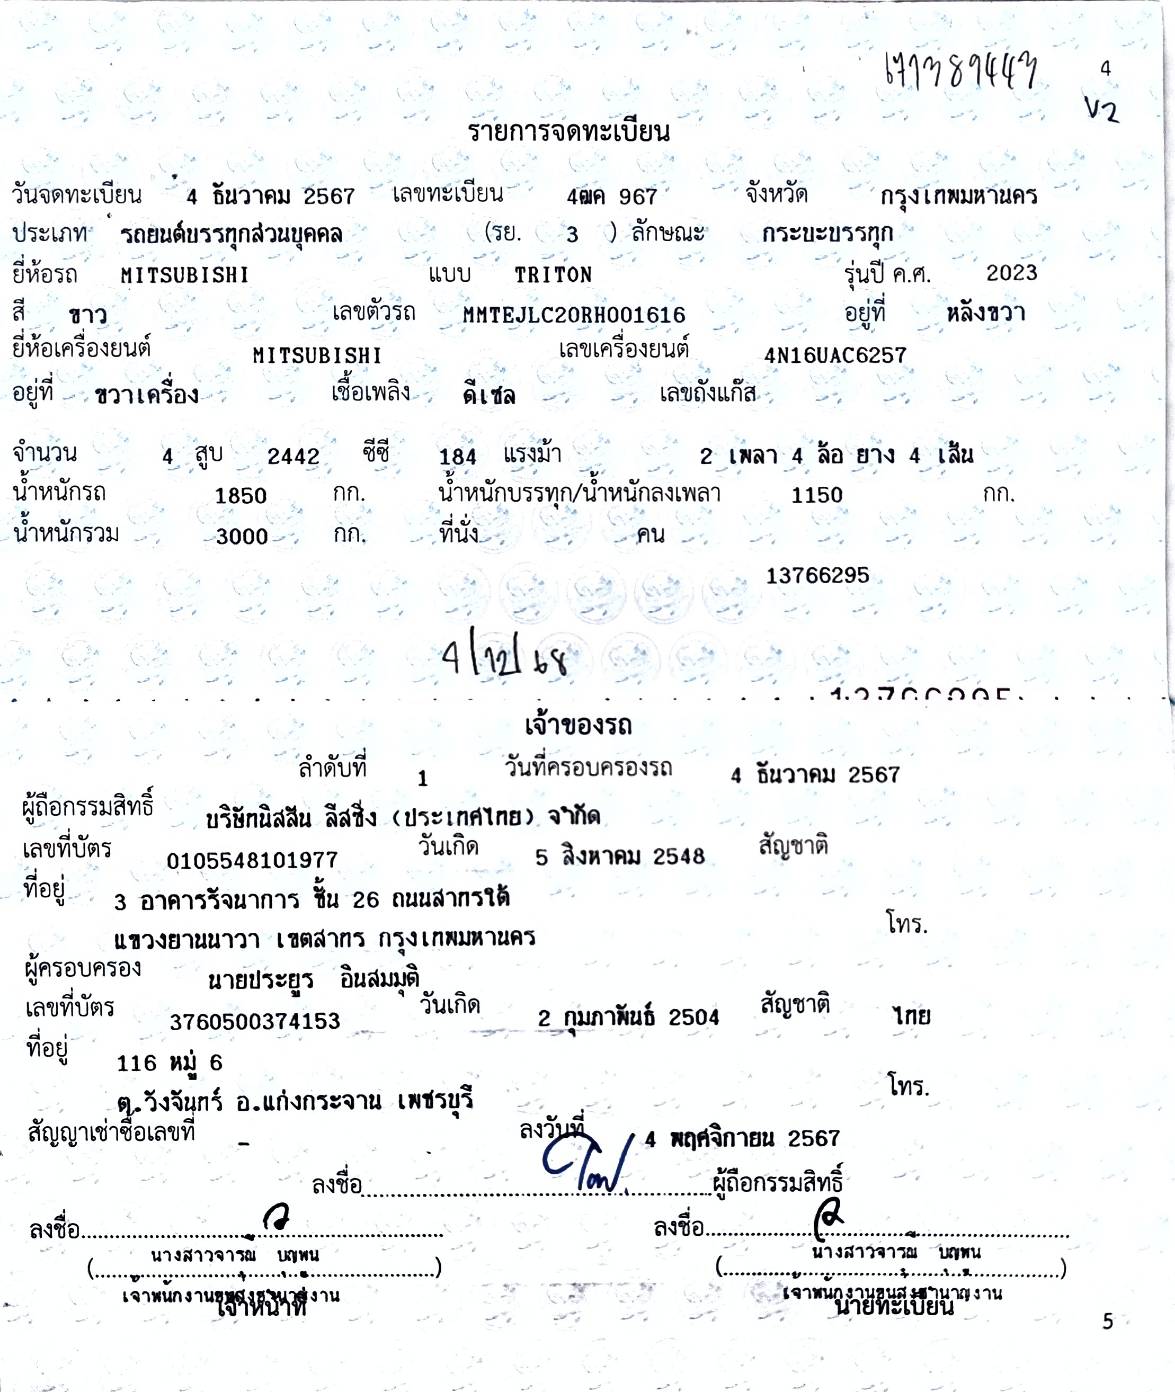 671389443 4
V2
รายการจดทะเบียน
วันจดทะเบียน 4 ธันวาคม 2567 เลขทะเบียน 4ฒค 967 จังหวัด กรุงเทพมหานคร
ประเภท รถยนต์บรรทุกส่วนบุคคล (รย. 3 ) ลักษณะ กระบะบรรทุก
ยี่ห้อรถ MITSUBISHI แบบ TRITON รุ่นปี ค.ศ. 2023
สี ขาว เลขตัวรถ MMTEJLC20RH001616 อยู่ที่ หลังขวา
ยี่ห้อเครื่องยนต์ MITSUBISHI เลขเครื่องยนต์ 4N16UAC6257
อยู่ที่ ขวาเครื่อง เชื้อเพลิง ดีเซล เลขถังแก๊ส
จำนวน 4 สูบ 2442 ซีซี 184 แรงม้า 2 เพลา 4 ล้อ ยาง 4 เส้น
น้ำหนักรถ 1850 กก. น้ำหนักบรรทุก/น้ำหนักลงเพลา 1150 กก.
น้ำหนักรวม 3000 กก. ที่นั่ง คน
13766295
4/12/68
13766295
เจ้าของรถ
ลำดับที่ 1 วันที่ครอบครองรถ 4 ธันวาคม 2567
ผู้ถือกรรมสิทธิ์ บริษัทนิสสัน ลีสซิ่ง (ประเทศไทย) จำกัด
เลขที่บัตร 0105548101977 วันเกิด 5 สิงหาคม 2548 สัญชาติ
ที่อยู่ 3 อาคารรัจนาการ ชั้น 26 ถนนสาทรใต้
แขวงยานนาวา เขตสาทร กรุงเทพมหานคร โทร.
ผู้ครอบครอง นายประยูร อินสมมุติ
เลขที่บัตร 3760500374153 วันเกิด 2 กุมภาพันธ์ 2504 สัญชาติ ไทย
ที่อยู่ 116 หมู่ 6
ต.วังจันทร์ อ.แก่งกระจาน เพชรบุรี โทร.
สัญญาเช่าซื้อเลขที่ - ลงวันที่ 4 พฤศจิกายน 2567
ลงชื่อ ผู้ถือกรรมสิทธิ์
ลงชื่อ ลงชื่อ
นางสาวจารุณี บุญพน นางสาวจารุณี บุญพน
เจ้าพนักงานขนส่งชำนาญงาน เจ้าพนักงานขนส่งชำนาญงาน
เจ้าหน้าที่ นายทะเบียน
5